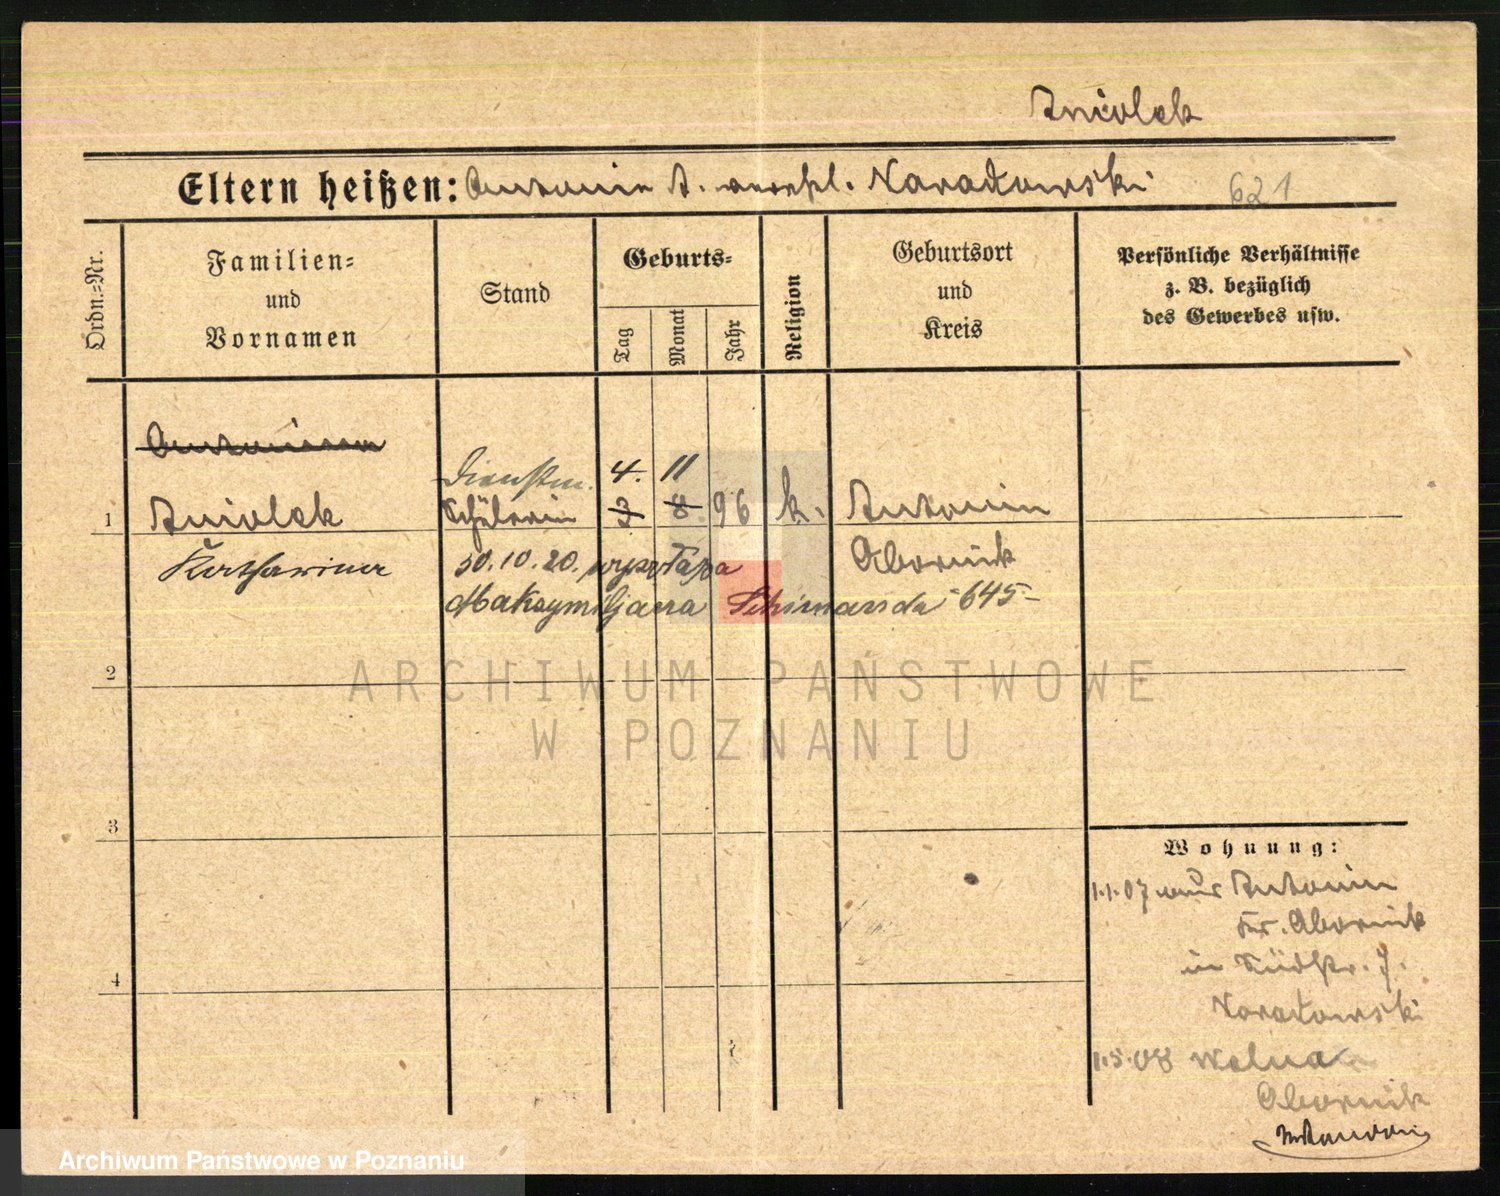 Aniolek
Eltern heißen: Antonin A. verehl. Naradowski 621
Ordn.=Nr.
Familien=
und
Vornamen
Stand
Geburts=
Tag
Monat
Jahr
Religion
Geburtsort
und
Kreis
Persönliche Verhältnisse
z. B. bezüglich
des Gewerbes usw.
Dienstm. 4. 11
1 Aniolek Schülerin 3 8 96 k. Antonin
Katharina 30.10.20. Obornik
Maksymiljana 645-
2
ARCHIWUM PAŃSTWOWE
W POZNANIU
3
4
Wohnung:
1.1.07 aus Antonin
Kr. Obornik
in Südstr. 7.
Naradowski
1.5.08
Obornik
Archiwum Państwowe w Poznaniu